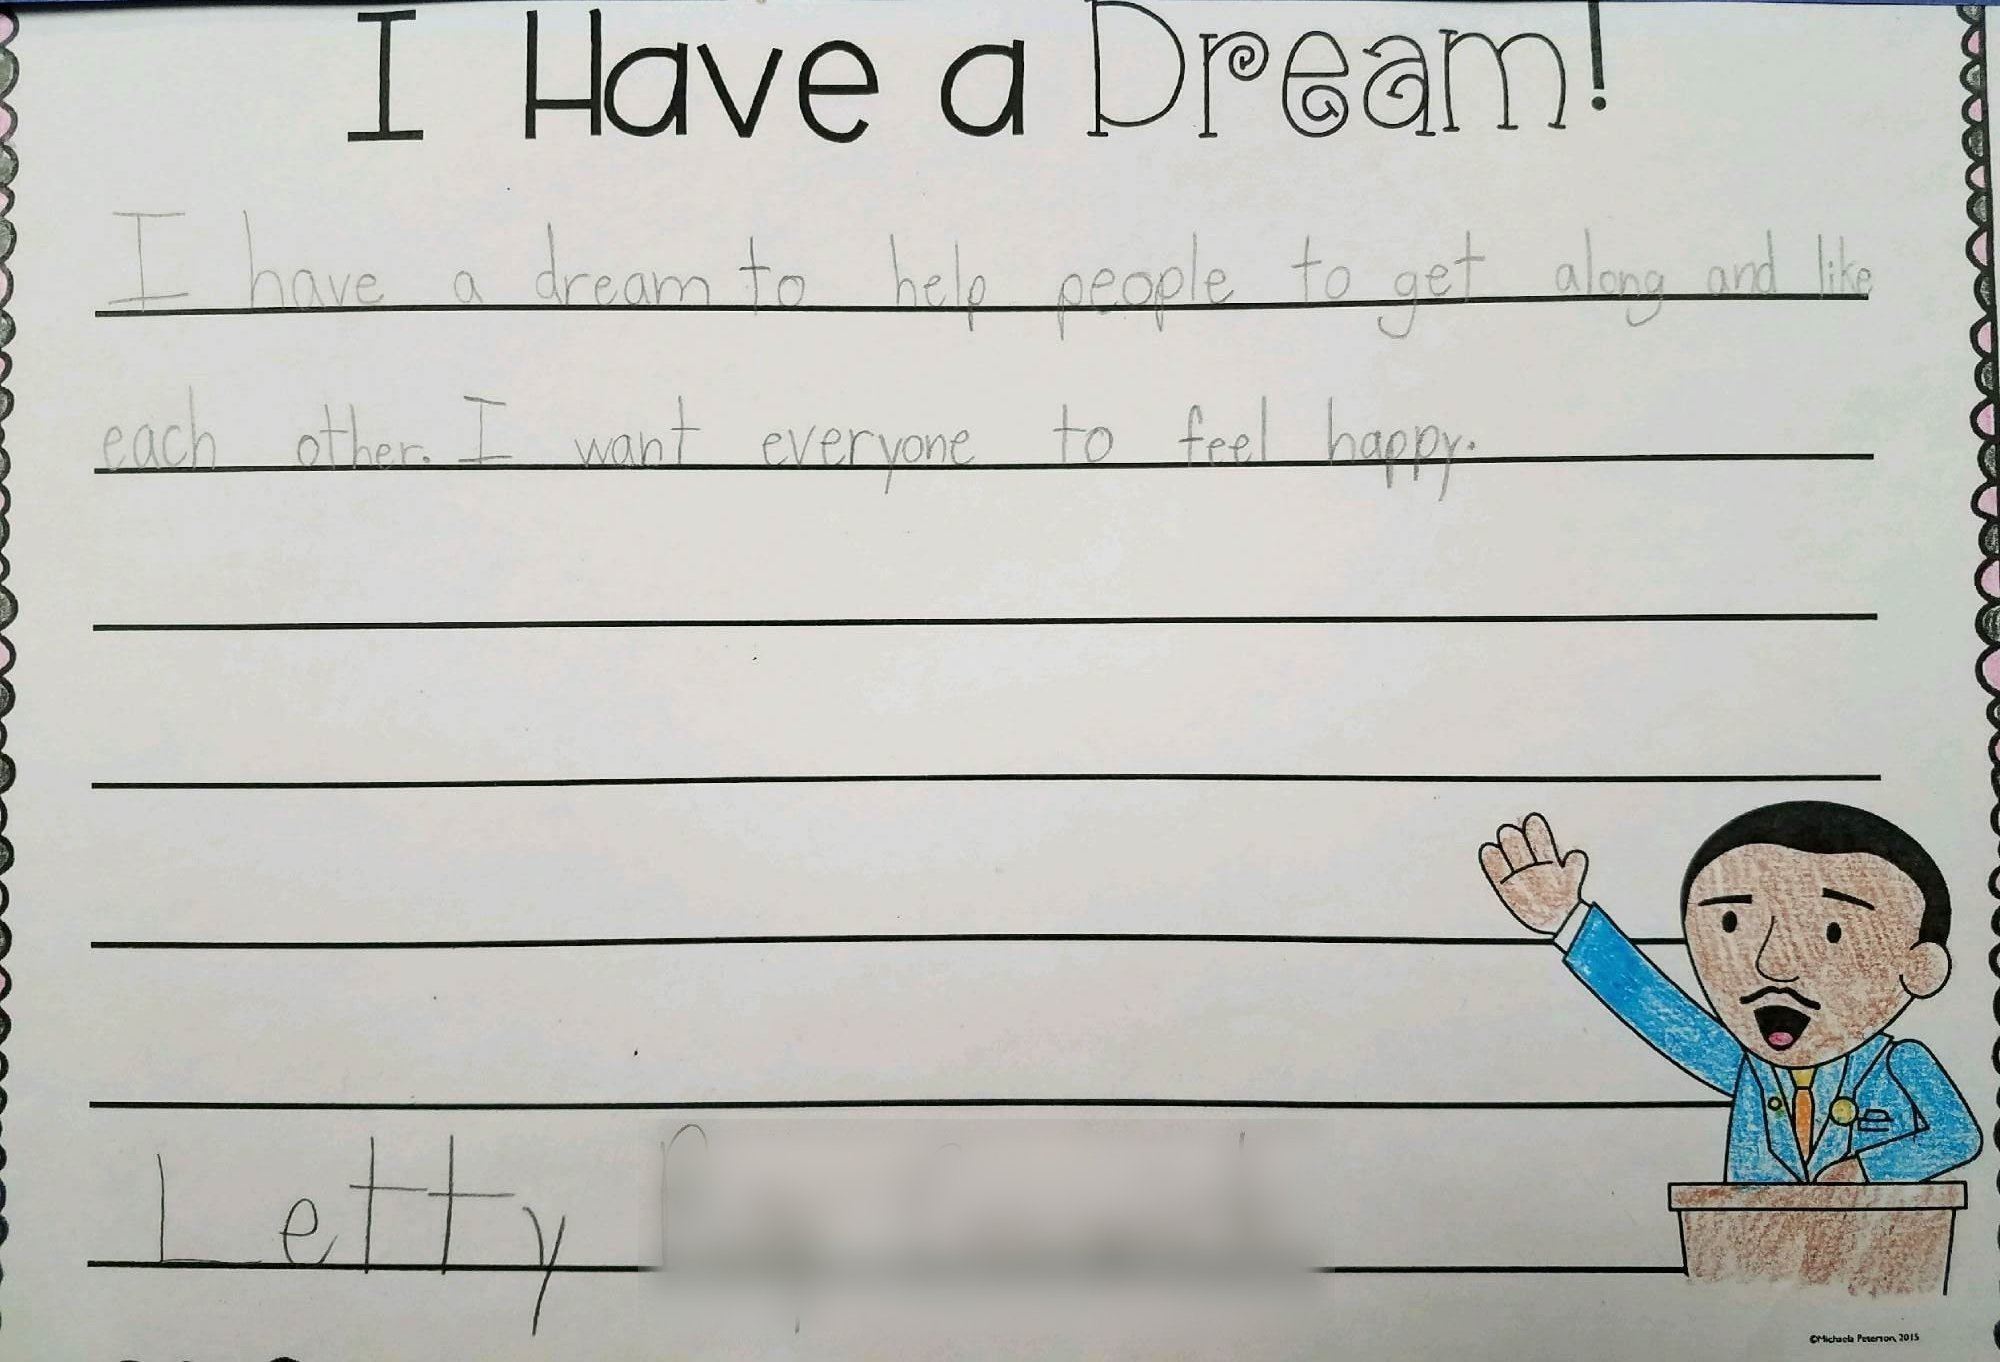 I Have a Dream!
I have a dream to help people to get along and like
each other. I want everyone to feel happy.
Letty
©Michaela Peterson, 2015